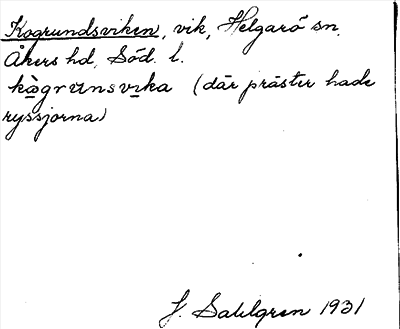 Kogrundsviken, vik, Helgarö sn.
Åkers hd, Söd. l.
kògrunsvika (där präster hade
ryssjorna)
J. Sahlgren 1931